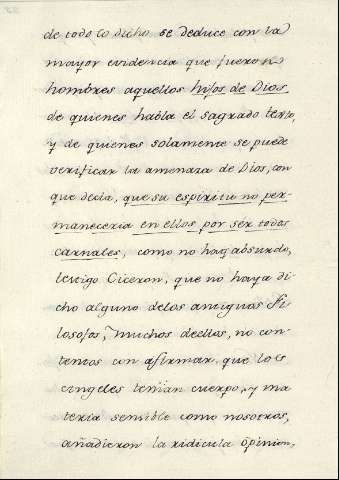 de todo lo dicho se deduce con la
mayor evidencia que fueron
hombres aquellos hijos de Dios,
de quienes habla el sagrado texto,
y de quienes solamente se puede
verificar la amenaza de Dios, con
que decia, que su espiritu no per-
maneceria en ellos por ser todos
carnales, como no hay absurdo,
testigo Ciceron, que no haya di-
cho alguno delos antiguos Fi-
losofos, muchos dellos, no con-
tentos con afirmar que los
angeles tenian cuerpo, y ma
teria sensible como nosotros,
añadieron la ridicula opinion,